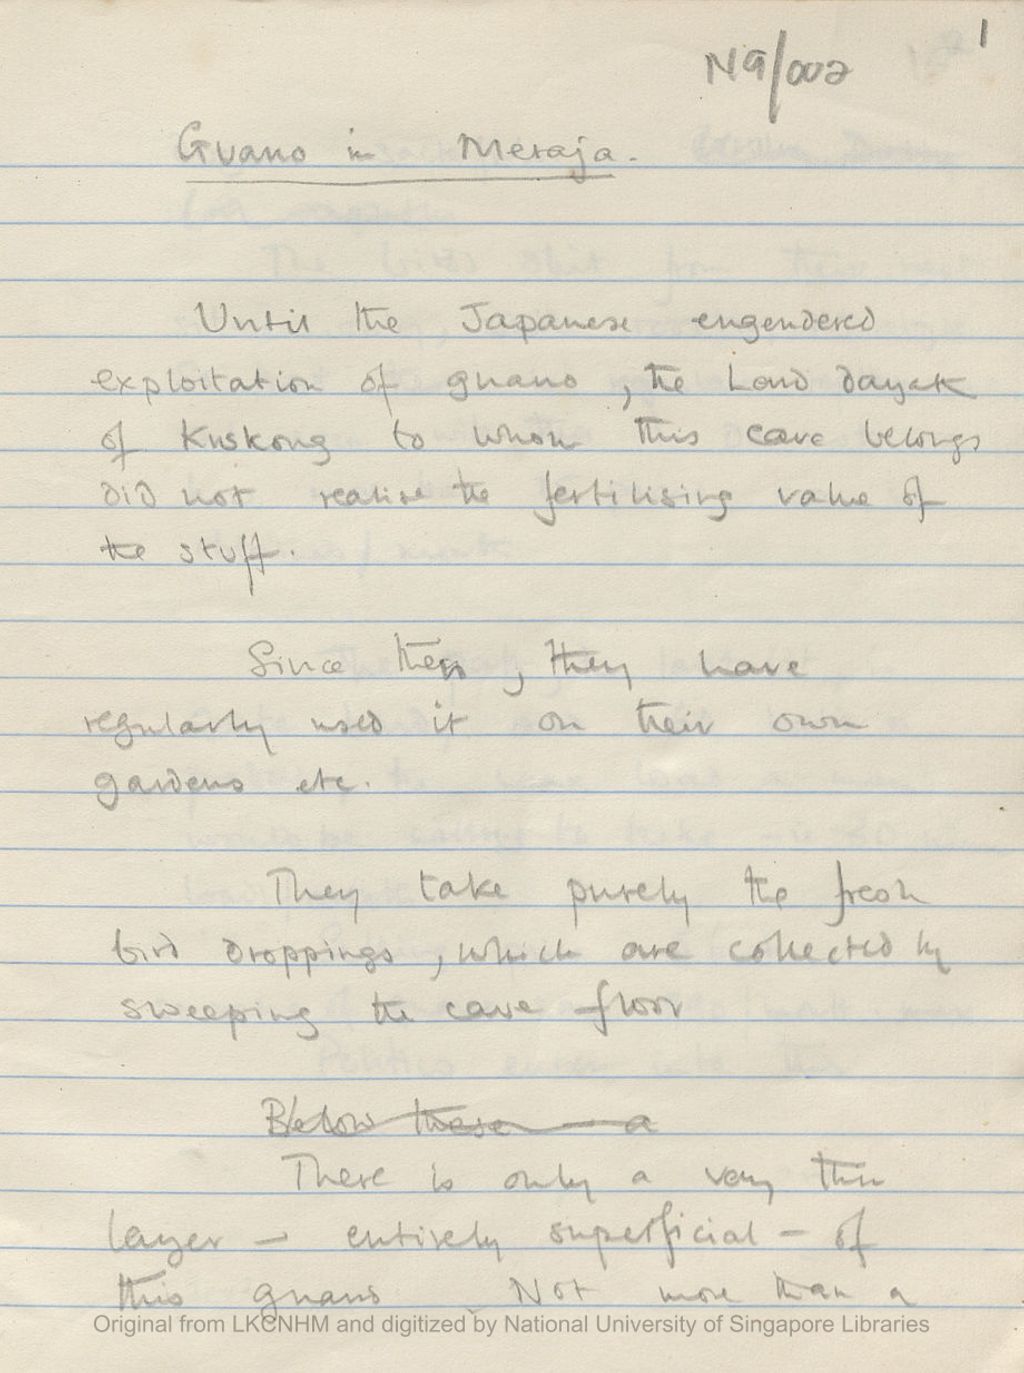 1
N9/002
Guano in Meraja.
Until the Japanese engendered
exploitation of guano, the Land dayak
of Kuskong to whom this cave belongs
did not realise the fertilising value of
the stuff.
Since then, they have
regularly used it on their own
gardens etc.
They take purely the fresh
bird droppings, which are collected by
sweeping the cave floor
Below these — a
There is only a very thin
layer — entirely superficial — of
this guano Not more than a
Original from LKCNHM and digitized by National University of Singapore Libraries